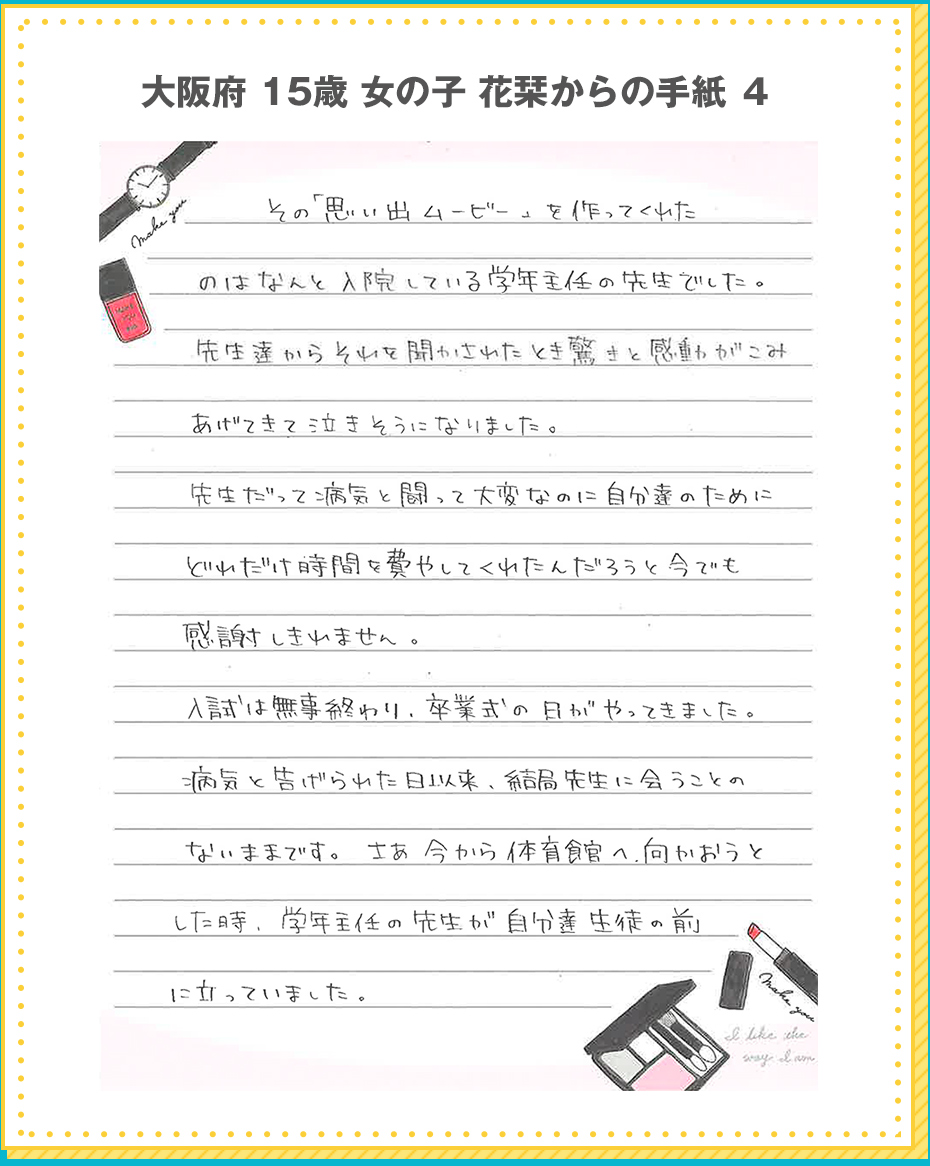 大阪府 15歳 女の子 花栞からの手紙 4
その「思い出ムービー」を作ってくれた
のはなんと入院している学年主任の先生でした。
先生達からそれを聞かされたとき驚きと感動がこみ
あげてきて泣きそうになりました。
先生だって病気と闘って大変なのに自分達のために
どれだけ時間を費やしてくれたんだろうと今でも
感謝しきれません。
入試は無事終わり、卒業式の日がやってきました。
病気と告げられた日以来、結局先生に会うことの
ないままです。さあ今から体育館へ向かおうと
した時、学年主任の先生が自分達生徒の前
に立っていました。
make you
MAKE YOU
make you
I like the
way I am